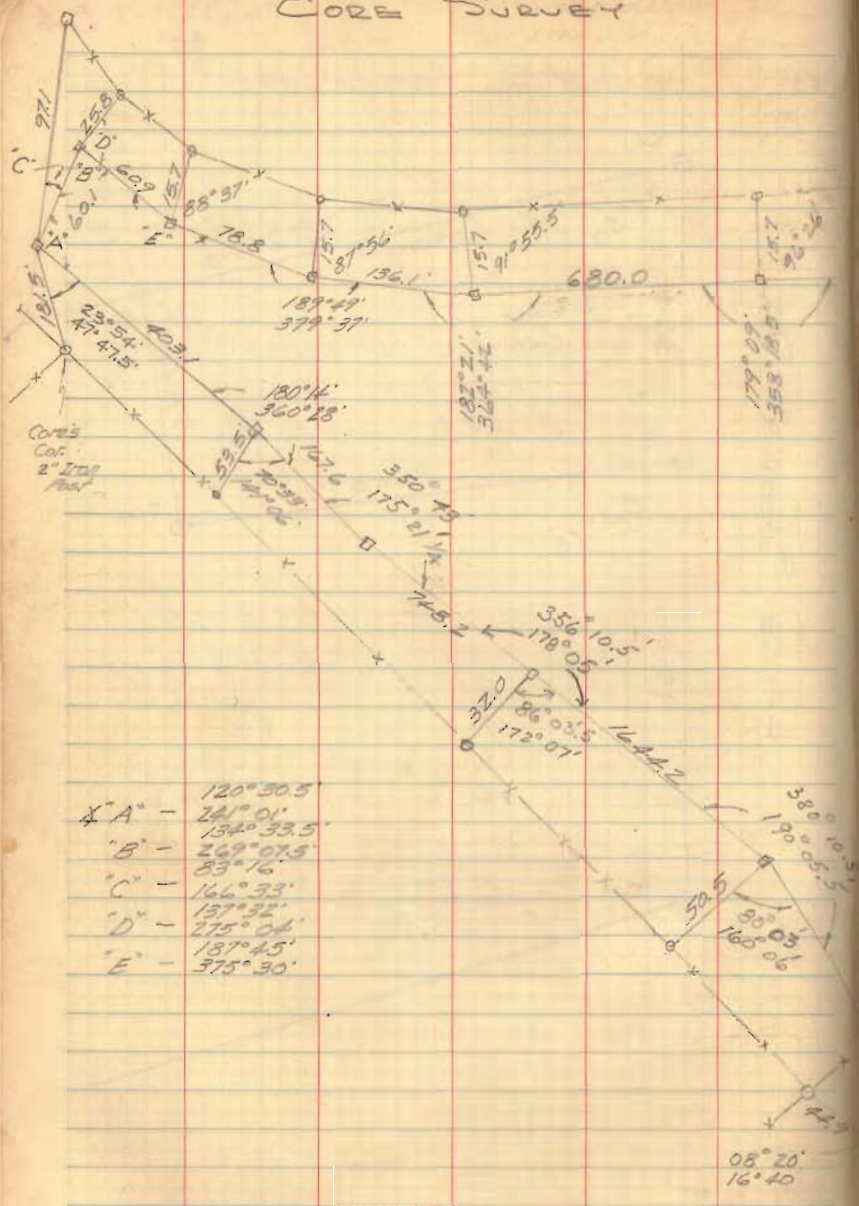 CORE SURVEY
97.1
25.8
"D"
"C"
"B"
60.9
15.7
88°37'
"A"
60.1
"E"
78.8
15.7
87°56'
136.1
15.7
91°55.5'
680.0
15.7
96°26'
189°49'
379°37'
182°21'
364°42'
179°09'
358°18.5'
181.5
23°54'
47°47.5'
403.1
180°14'
360°28'
Core's
Cor.
2" Iron
Post
53.5
70°33'
141°06'
167.6
350°43'
175°21'
745.2
356°10.5'
178°05'
32.0
86°03.5
172°07'
1644.2
380°10.5'
190°05.5'
50.5
80°03'
160°06'
120°30.5'
∡ "A" - 241°01'
134°33.5'
"B" - 269°07.5'
83°16'
"C" - 166°33'
137°32'
"D" - 275°04'
187°45'
"E" - 375°30'
44.9
08°20'
16°40'